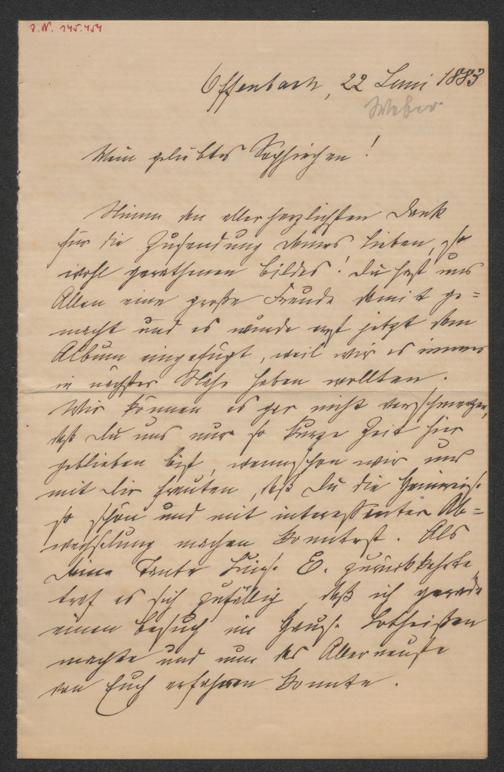 I. N. 145.454
Offenbach, 22 Juni 1883
Weber
Mein geliebtes Sophiechen!
Nimm den allerherzlichsten Dank
für die Zusendung Deines lieben, so
wohl gerathenen Bildes! Du hast uns
Allen eine große Freude damit ge=
macht und es wurde erst jetzt dem
Album eingefügt, weil wir es immer
in nächster Nähe haben wollten.
Wir können es gar nicht verschmerzen,
daß Du uns nur so kurze Zeit hier
geblieben bist, wennschon wir uns
mit Dir freuten, daß Du die Heimreise
so schön und mit interessanter Ab=
wechselung machen konntest. Als
Deine Tante Luise E. zurückkehrte
traf es sich zufällig daß ich gerade
einen Besuch im Hause
machte und nun das Allerneuste
von Euch erfahren konnte.